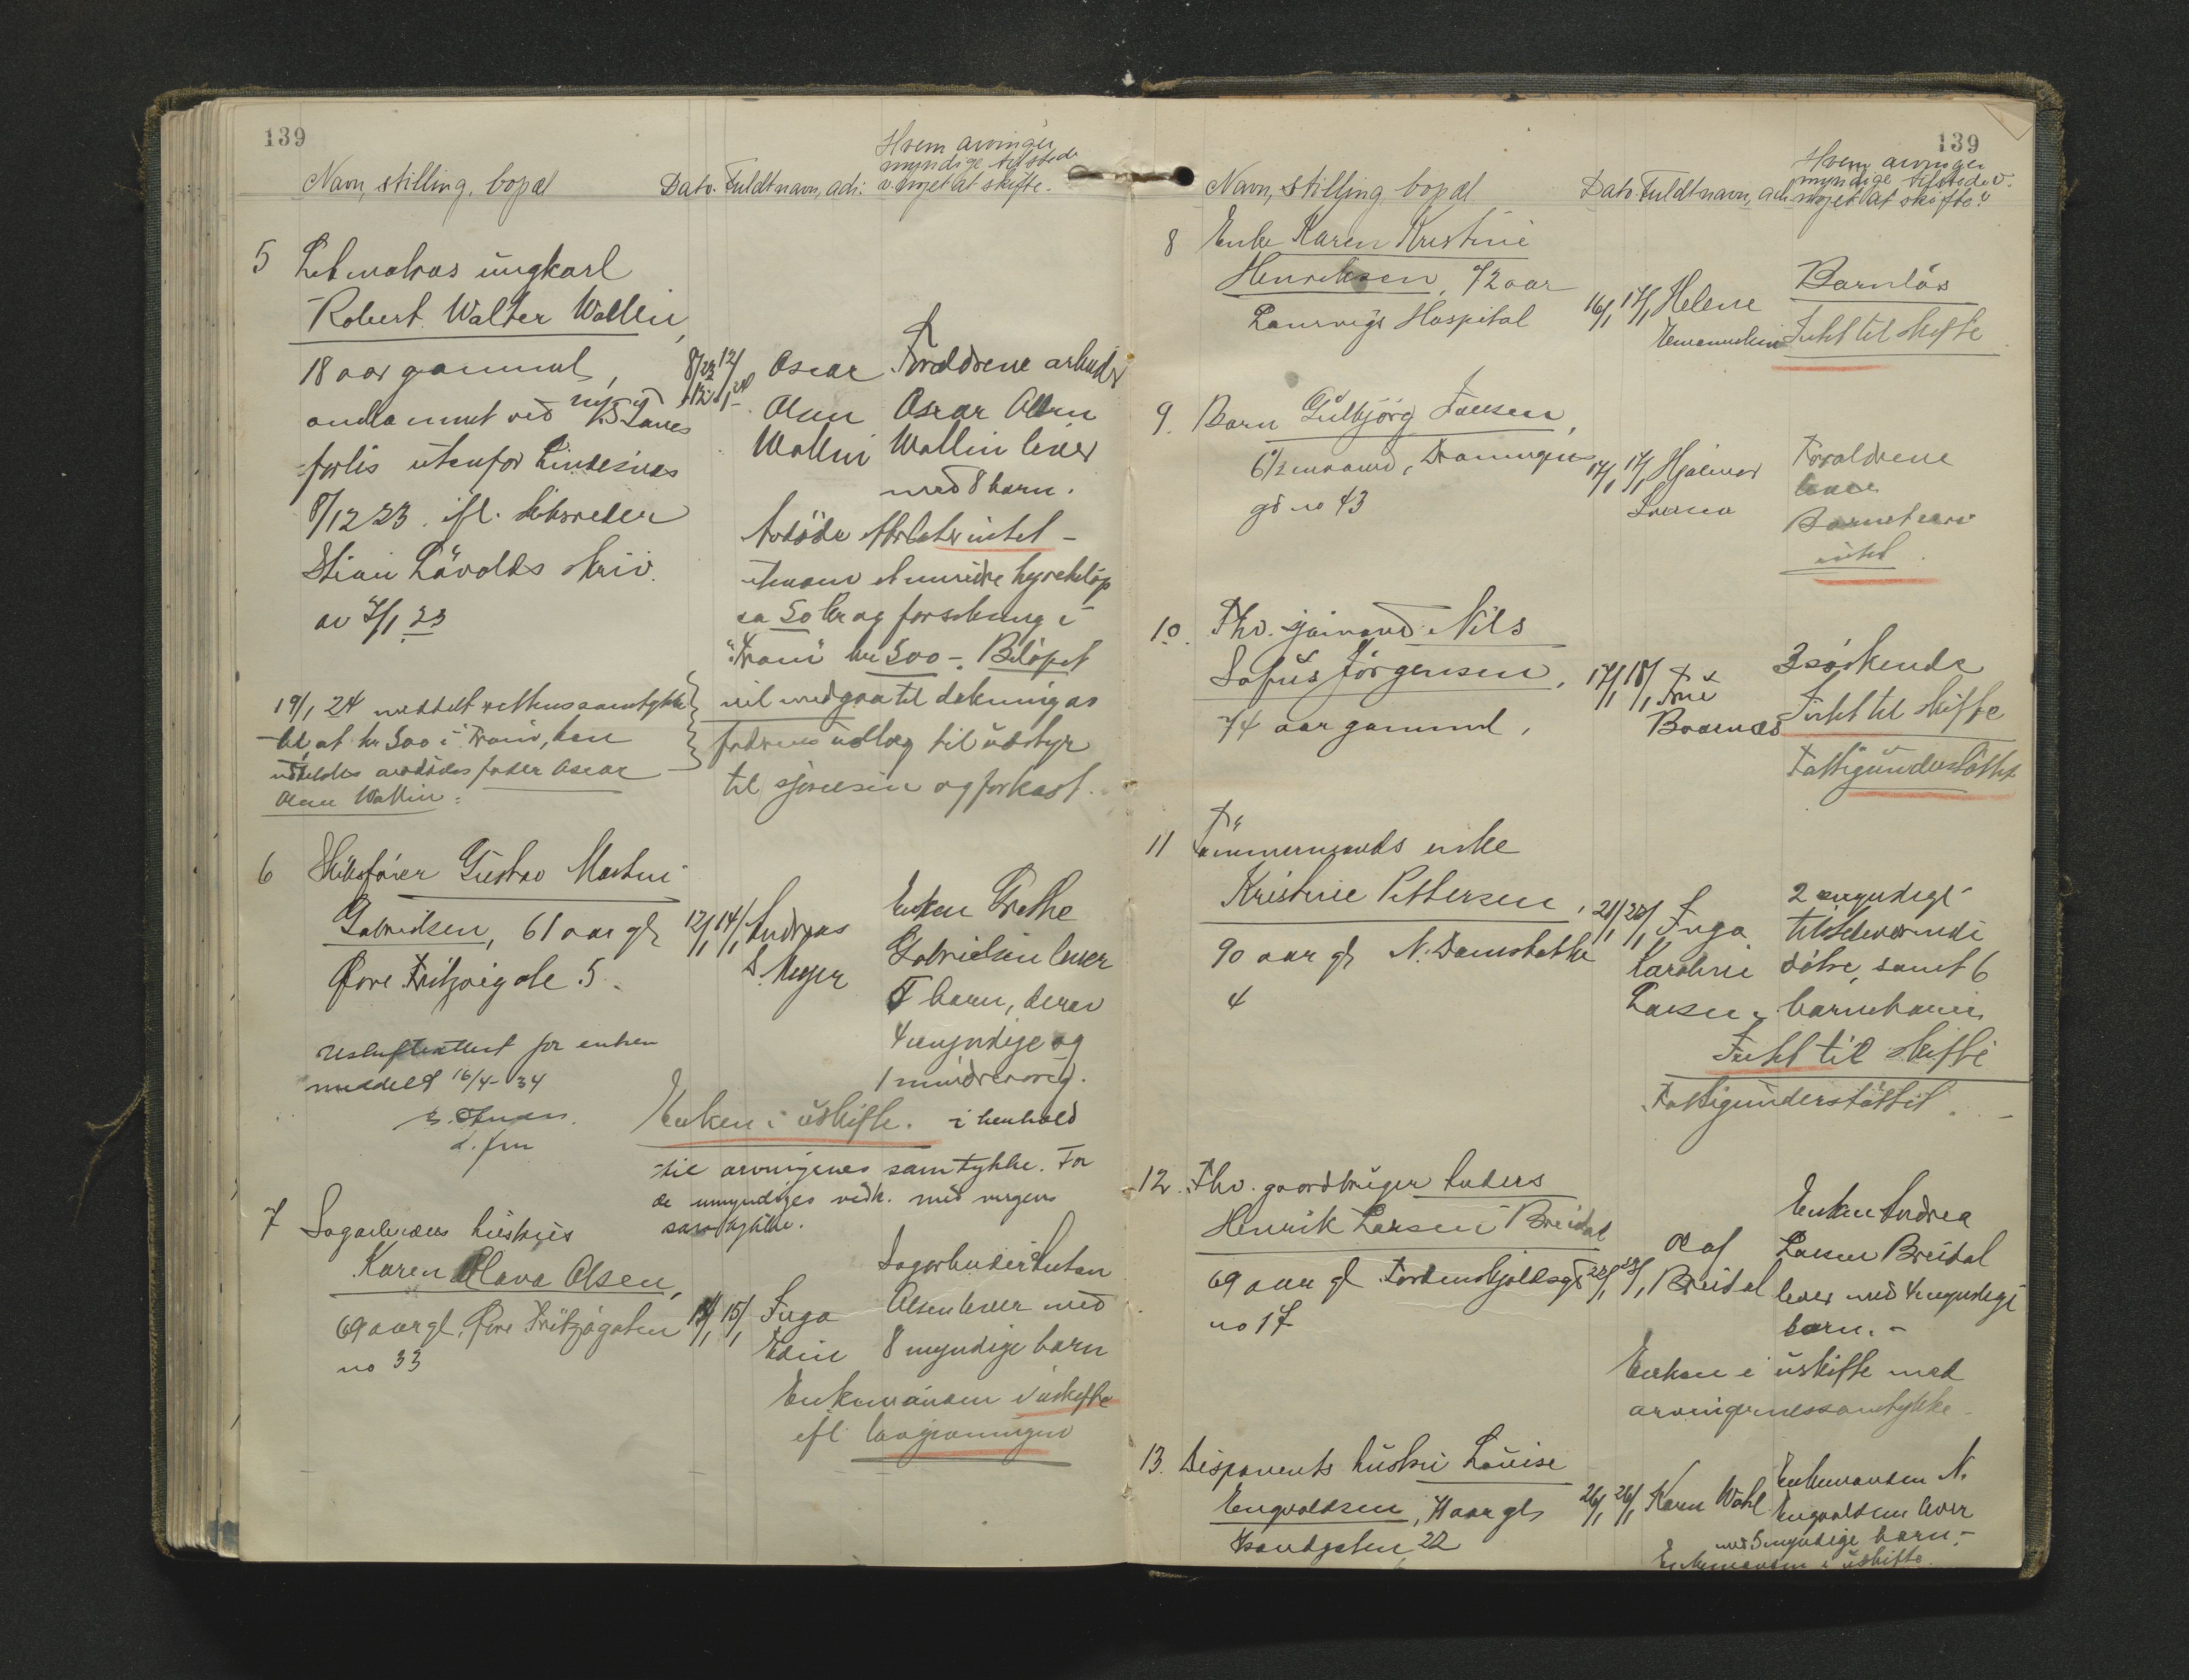 139
Navn, stilling, bopæl
Dato. Fuldt navn, adr:
Hvem arvinger
myndige tilstede
o. noget at skifte.
5 Letmatros ungkarl
Robert Walter Wallin,
18 aar gammel,
omkommet ved
forlis utenfor Lindesnes
8/12 23. ifl. skibsreder
Stian Løvolds skriv.
av 7/1 23
8/12 23 12/1 24
Oscar
Olsen
Wallin
Forældrene arbeider
Oscar Olsen
Wallin lever
med 8 barn.
Avdøde efterlater intet –
utenom et mindre hyrebeløp
ca 50 kr og forsikring i
"Fram" kr 500 –. Beløpet
vil medgaa til dekning av
faderens utlæg til utstyr
til sjoreisen og forkost.
19/1 24 meddelt rettens samtykke
til, at kr 500 i Fram, kan
utbetales avdødes fader Oscar
Olsen Wallin.
6 Skibsfører Gustav Martin
Gabrielsen, 61 aar gl
Øvre Fritzøegate 5.
12/1 14/1 Andreas
S. Meyer
Enken Grethe
Gabrielsen lever
5 barn, derav
4 myndige og
1 mindreaarig.
Enken i uskifte. i henhold
til arvingenes samtykke. For
de umyndiges vedk. med vergens
samtykke.
Uskifteattest for enken
meddelt 16/4-34
7 Sagarbeiders hustru
Karen Olava Olsen,
69 aar gl, Øvre Fritzøgaten
no 33
14/1 15/1 Inga
Edin
Sagarbeider Anton
Olsen lever med
8 myndige barn
Enkemanden i uskifte
ifl lovgivningen
139
Navn, stilling, bopæl
Dato. Fuldt navn, adr.
Hvem arvinger
myndige tilstede o.
noget at skifte?
8 Enke Karen Kristine
Henriksen, 72 aar
Laurvigs Hospital
16/1 17/1 Helene
Emanuelsen
Barnløs
Intet til skifte
9. Barn Gulbjørg Iversen,
6 1/2 maaned, Dronningens
gd no 43
17/1 17/1 Hjalmar
Iversen
Forældrene
lever
Barnet eier
intet.
10. Fhv. sjømand Nils
Sofus Jørgensen,
74 aar gammel,
17/1 18/1 Frk
Boernes
3 søskende
Intet til skifte
Fattigunderstøttet
11 Tømmermands enke
Kristine Pettersen,
90 aar gl N. Damstokke
4
21/1 22/1 Inga
Karoline
Larsen
2 myndige
tilstedeværende
døtre, samt 6
barnebarn
Intet til skifte
Fattigunderstøttet.
12. Fhv. gaardbruger Anders
Henrik Larsen Breidal
69 aar gl Tordenskjoldsgt
no 17
22/1 23/1 Olaf
Breidal
Enken Andrea
Larsen Breidal
lever med 4 myndige
barn. –
Enken i uskifte med
arvingernes samtykke.
13. Disponents hustru Louise
Engvaldsen, 71 aar gl,
Strandgaten 22
26/1 26/1 Karen Wahl
Enkemanden N.
Engvaldsen lever
med 5 myndige barn. –
Enkemanden i uskifte.